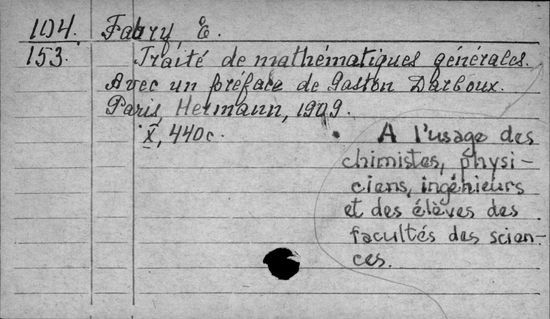 104. Fabry E.
153. Traité de mathématiques générales.
Avec un préface de Gaston Darboux.
Paris, Hermann, 1909.
X, 440 c.
A l'usage des
chimistes, physi-
ciens, ingénieurs
et des élèves des
facultés des scien-
ces.